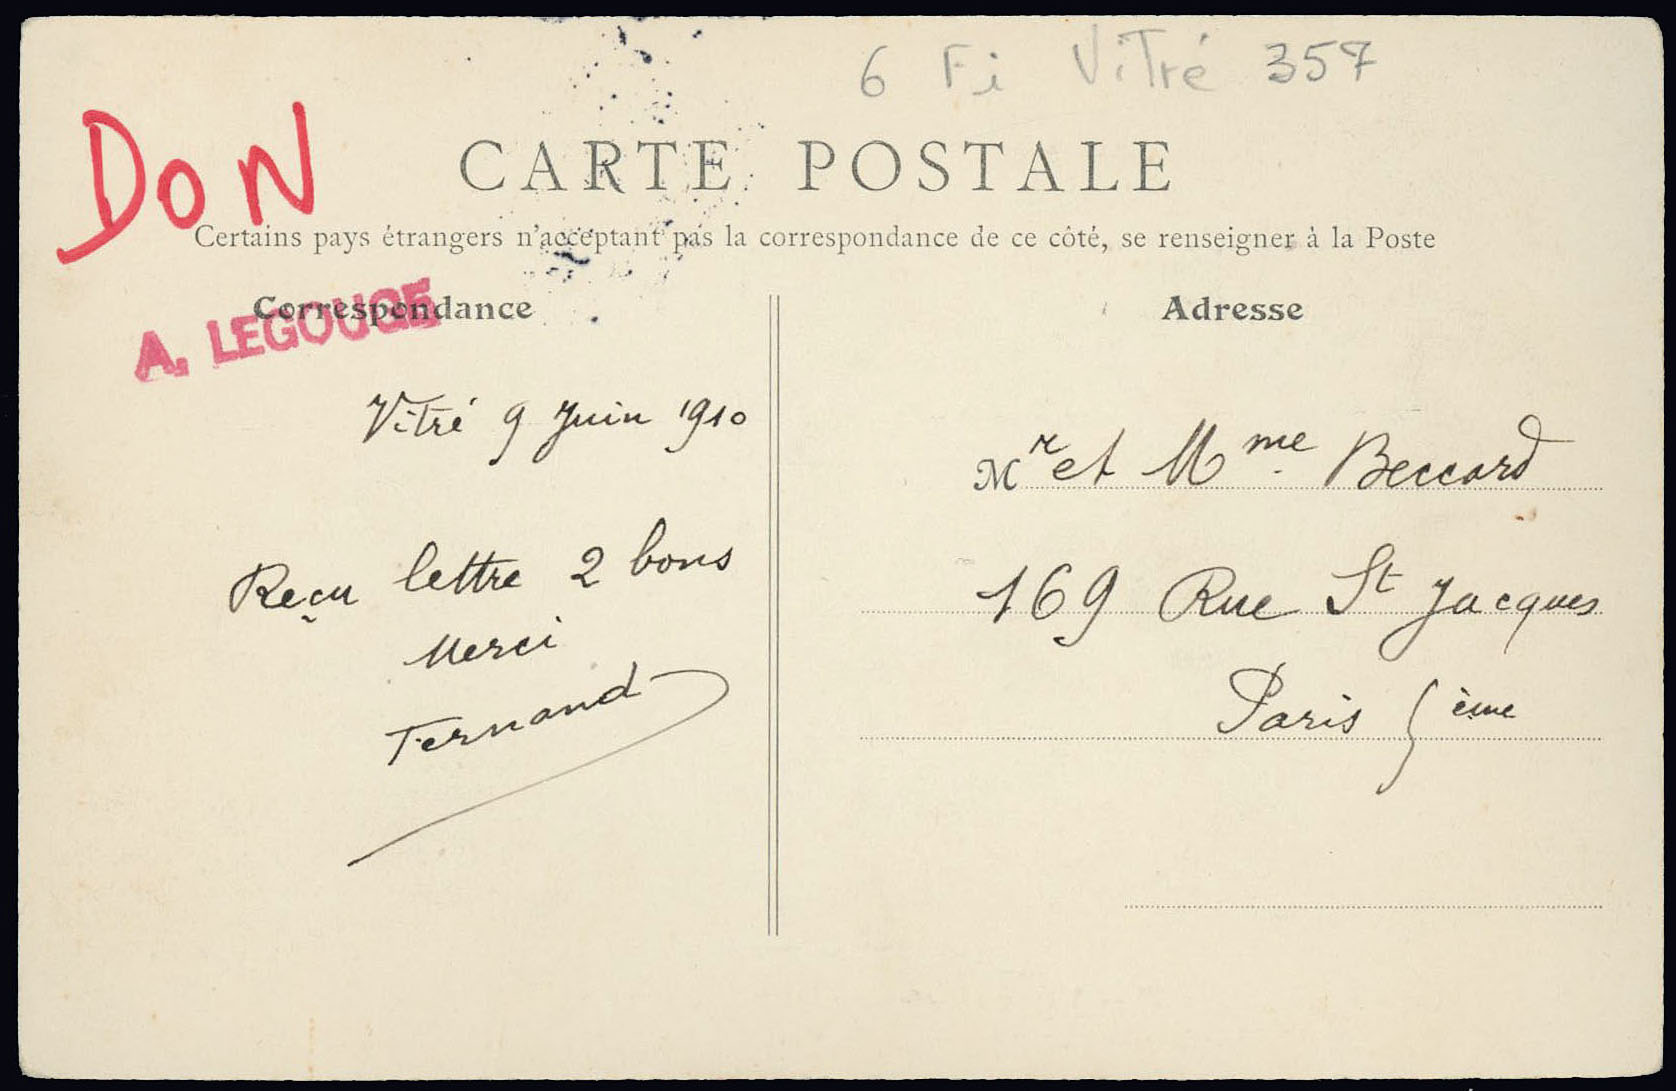 6 Fi Vitré 357
DON
CARTE POSTALE
Certains pays étrangers n'acceptant pas la correspondance de ce côté, se renseigner à la Poste
A. LEGOUGE
Correspondance
Adresse
Vitré 9 Juin 1910
Reçu lettre 2 bons
Merci
Fernand
Mr et Mme Beccard
169 Rue St Jacques
Paris 5ème